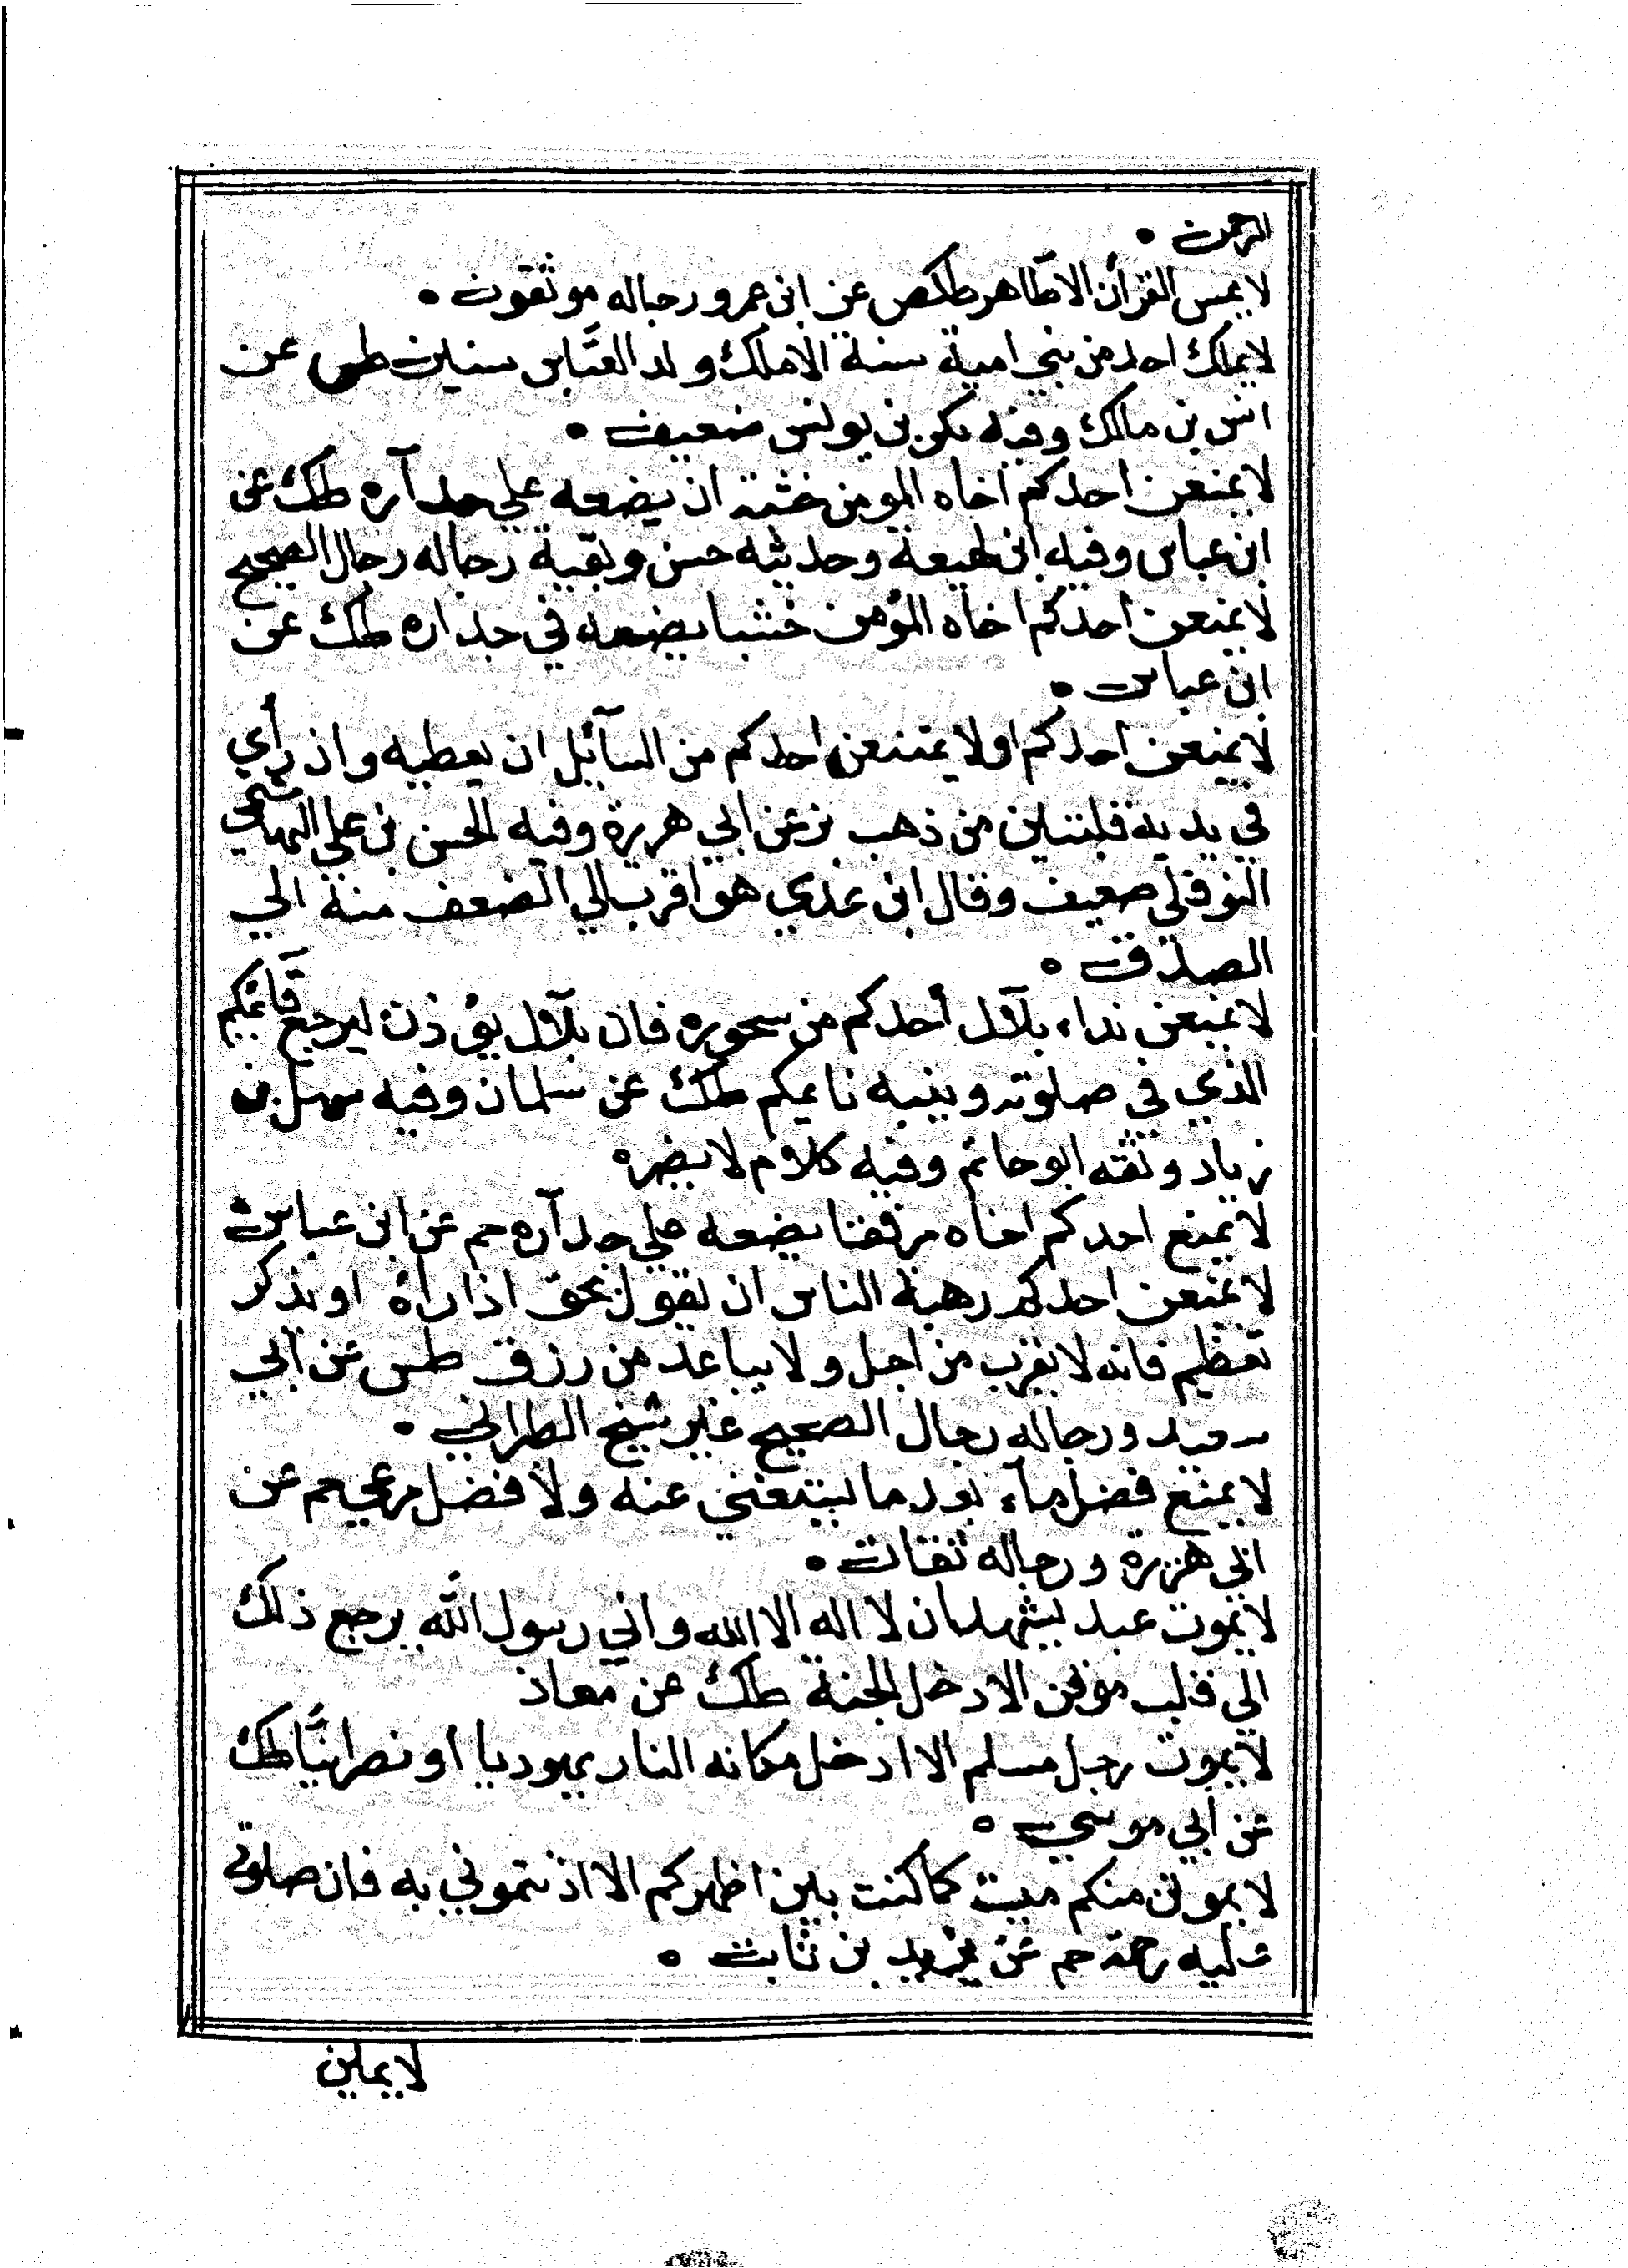 الرحمن •
لا يمس القرآن الا طاهر طكص عن ابن عمر ورجاله موثقون •
لا يملك احد من بني امية سنة الا ملك ولد العباس سنين طس عن
انس بن مالك وفيه بكر بن يونس ضعيف •
لا يمنعن احدكم اخاه المومن خشبة ان يضعه علي جدآره طك عن
ابن عباس وفيه ابن لهيعة وحديثه حسن وبقية رجاله رجال الصحيح
لا يمنعن احدكم اخاه المؤمن خشبا يضعه في جداره طك عن
ابن عباس •
لا يمنعن احدكم او لا يمتنعن احدكم من السآئل ان يعطيه وان رأي
في يديه قلبين من ذهب بز عن ابي هريرة وفيه الحسن بن علي الهاشمي
النوفلي ضعيف وقال ابن عدي هو اقرب الي الضعف منه الي
الصدق •
لا يمنعن نداء بلآل أحدكم من سحوره فان بلآل يؤذن ليرجع قآئمكم
الذي في صلوته وينبه نايمكم طك عن سلمان وفيه سهل بن
زياد وثقه ابو حاتم وفيه كلام لا يضره
لا يمنع احدكم اخاه مرفقا يضعه علي جدآره حم عن ابن عباس
لا يمنعن احدكم رهبة الناس ان يقول بحق اذا راه او يذكر
تعظيم فانه لا يقرب من اجل ولا يباعد من رزق طس عن ابي
سعيد ورجاله رجال الصحيح غير شيخ الطبراني •
لا يمنع فضل مآء بعد ما يستغني عنه ولا فضل مرعي حم عن
ابي هريرة ورجاله ثقات •
لا يموت عبد يشهد ان لا اله الا الله واني رسول الله يرجع ذلك
الي قلب موقن الا دخل الجنة طك عن معاذ
لا يموت رجل مسلم الا ادخل مكانه النار يهوديا أو نصرانيا طك
عن أبي موسي •
لا يموتن منكم ميت كما كنت بين اظهركم الا اذنتموني به فان صلوتي
عليه رحمة حم عن يزيد بن ثابت •
لا يمين